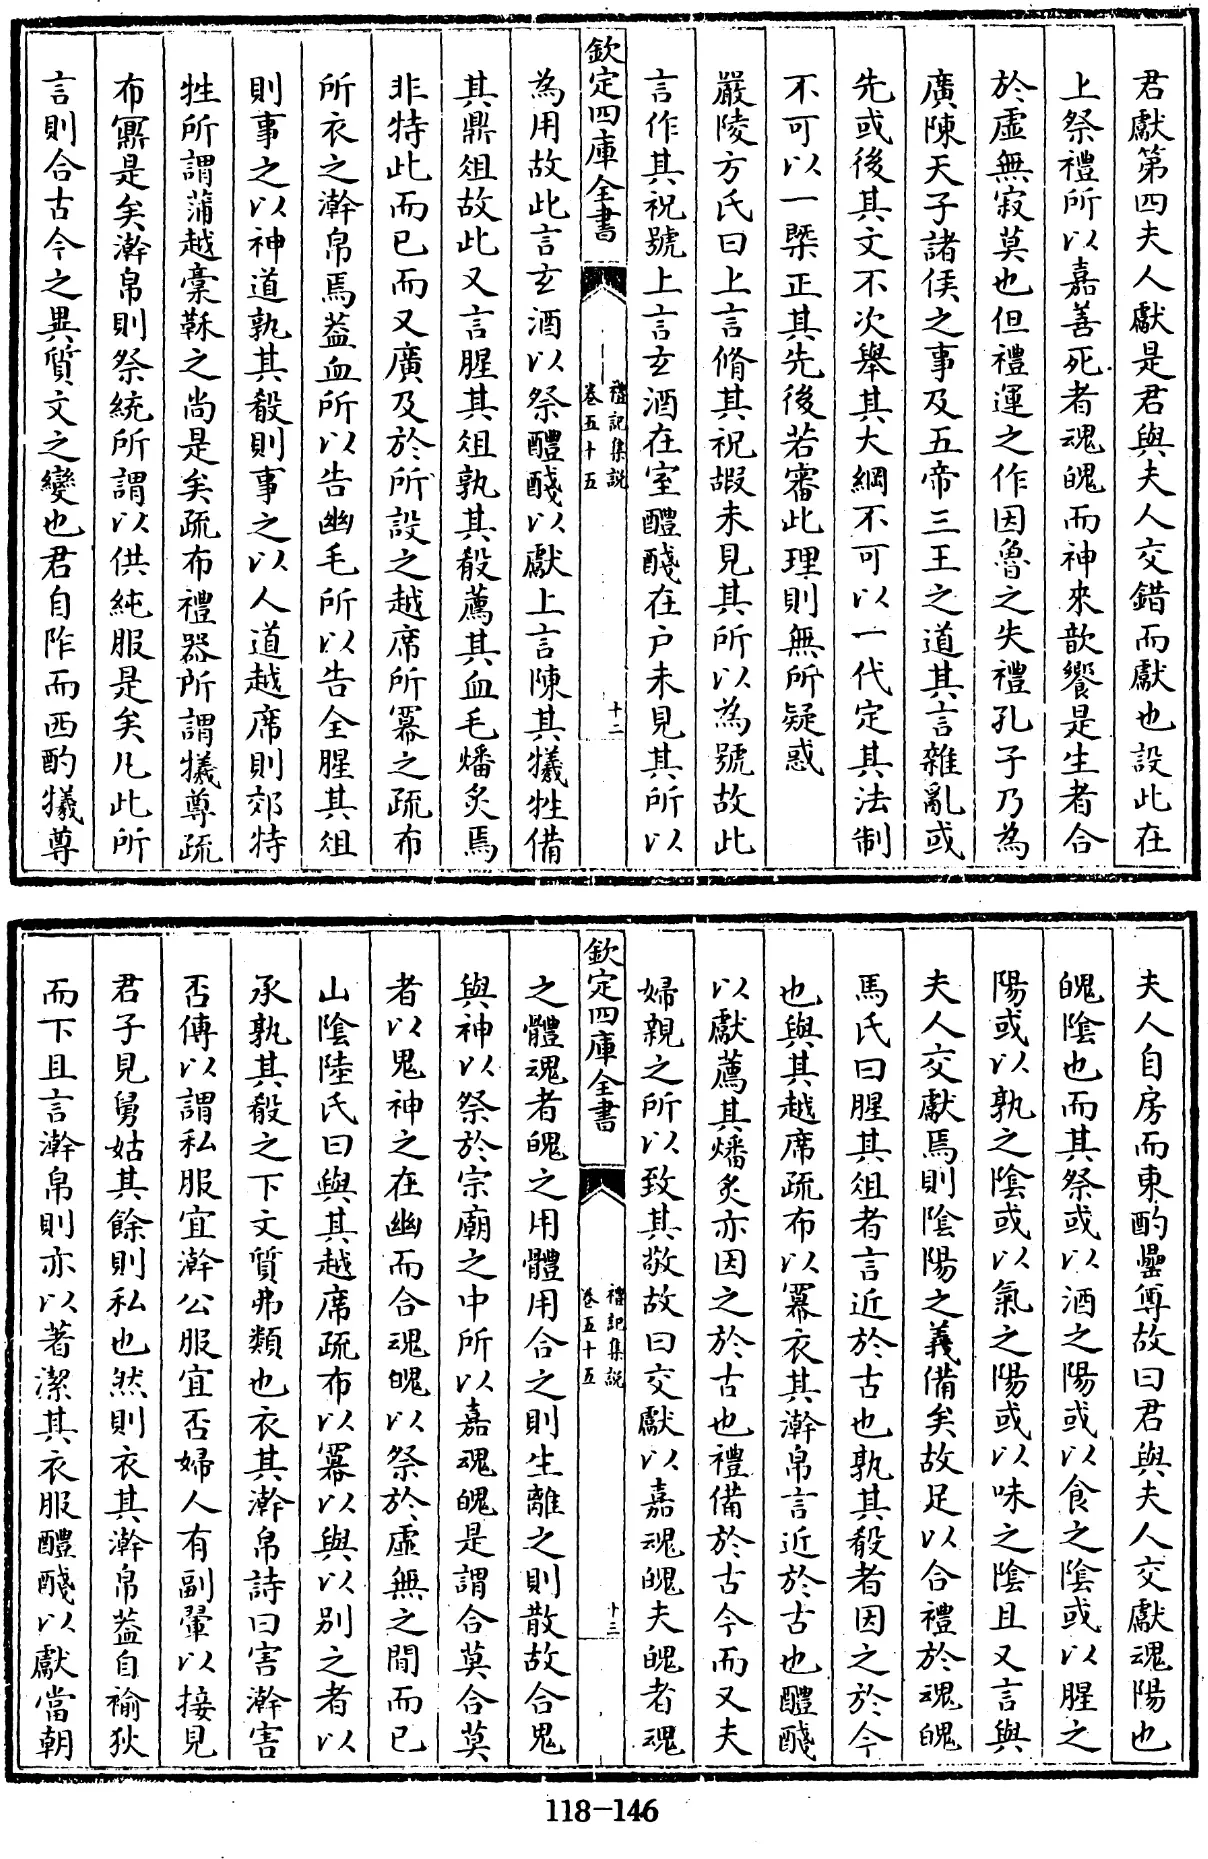 君獻第四夫人獻是君與夫人交錯而獻也設此在
上祭禮所以嘉善死者魂魄而神來歆饗是生者合
於虛無寂莫也但禮運之作因魯之失禮孔子乃為
廣陳天子諸侯之事及五帝三王之道其言雜亂或
先或後其文不次舉其大綱不可以一代定其法制
不可以一槩正其先後若審此理則無所疑惑
嚴陵方氏曰上言脩其祝嘏未見其所以為號故此
言作其祝號上言玄酒在室醴醆在户未見其所以
欽定四庫全書
禮記集說
卷五十五
十二
為用故此言玄酒以祭醴醆以獻上言陳其犧牲備
其鼎俎故此又言腥其俎孰其殽薦其血毛燔炙焉
非特此而已而又廣及於所設之越席所冪之疏布
所衣之澣帛焉葢血所以告幽毛所以告全腥其俎
則事之以神道孰其殽則事之以人道越席則郊特
牲所謂蒲越藁鞂之尚是矣疏布禮器所謂犧尊疏
布鼏是矣澣帛則祭統所謂以供純服是矣凡此所
言則合古今之異質文之變也君自阼而西酌犧尊
夫人自房而東酌罍尊故曰君與夫人交獻魂陽也
魄陰也而其祭或以酒之陽或以食之陰或以腥之
陽或以孰之陰或以氣之陽或以味之陰且又言與
夫人交獻焉則陰陽之義備矣故足以合禮於魂魄
馬氏曰腥其俎者言近於古也孰其殽者因之於今
也與其越席疏布以冪衣其澣帛言近於古也醴醆
以獻薦其燔炙亦因之於古也禮備於古今而又夫
婦親之所以致其敬故曰交獻以嘉魂魄夫魄者魂
欽定四庫全書
禮記集說
卷五十五
十三
之體魂者魄之用體用合之則生離之則散故合鬼
與神以祭於宗廟之中所以嘉魂魄是謂合莫合莫
者以鬼神之在幽而合魂魄以祭於虛無之間而已
山陰陸氏曰與其越席疏布以冪以與以別之者以
承孰其殽之下文質弗類也衣其澣帛詩曰害澣害
否傳以謂私服宜澣公服宜否婦人有副褘以接見
君子見舅姑其餘則私也然則衣其澣帛葢自褕狄
而下且言澣帛則亦以著潔其衣服醴醆以獻當朝
118-146